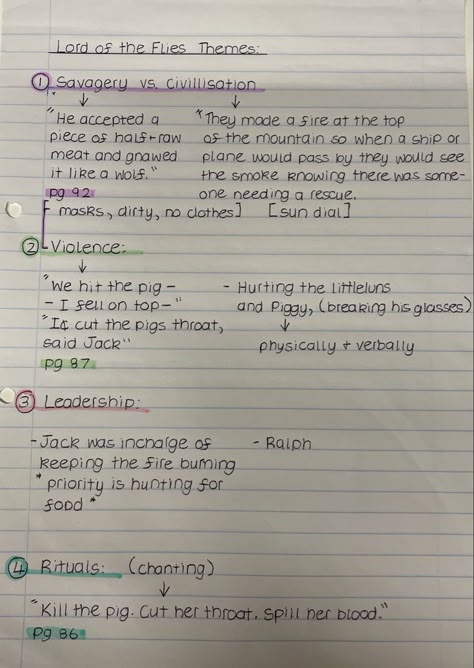 Lord of the Flies Themes:
① Savagery vs. civillisation
"He accepted a
piece of half-raw
meat and gnawed
it like a wolf."
pg 92
*They made a fire at the top
of the mountain so when a ship or
plane would pass by they would see
the smoke knowing there was some-
one needing a rescue.
[masks, dirty, no clothes] [sun dial]
② Violence:
"We hit the pig -
- I fell on top-"
"I cut the pigs throat,
said Jack"
pg 87
- Hurting the littleluns
and Piggy, (breaking his glasses)
physically + verbally
③ Leadership:
- Jack was incharge of
keeping the fire burning
* priority is hunting for
food *
- Ralph
④ Rituals: (chanting)
"Kill the pig. Cut her throat. Spill her blood."
pg 86